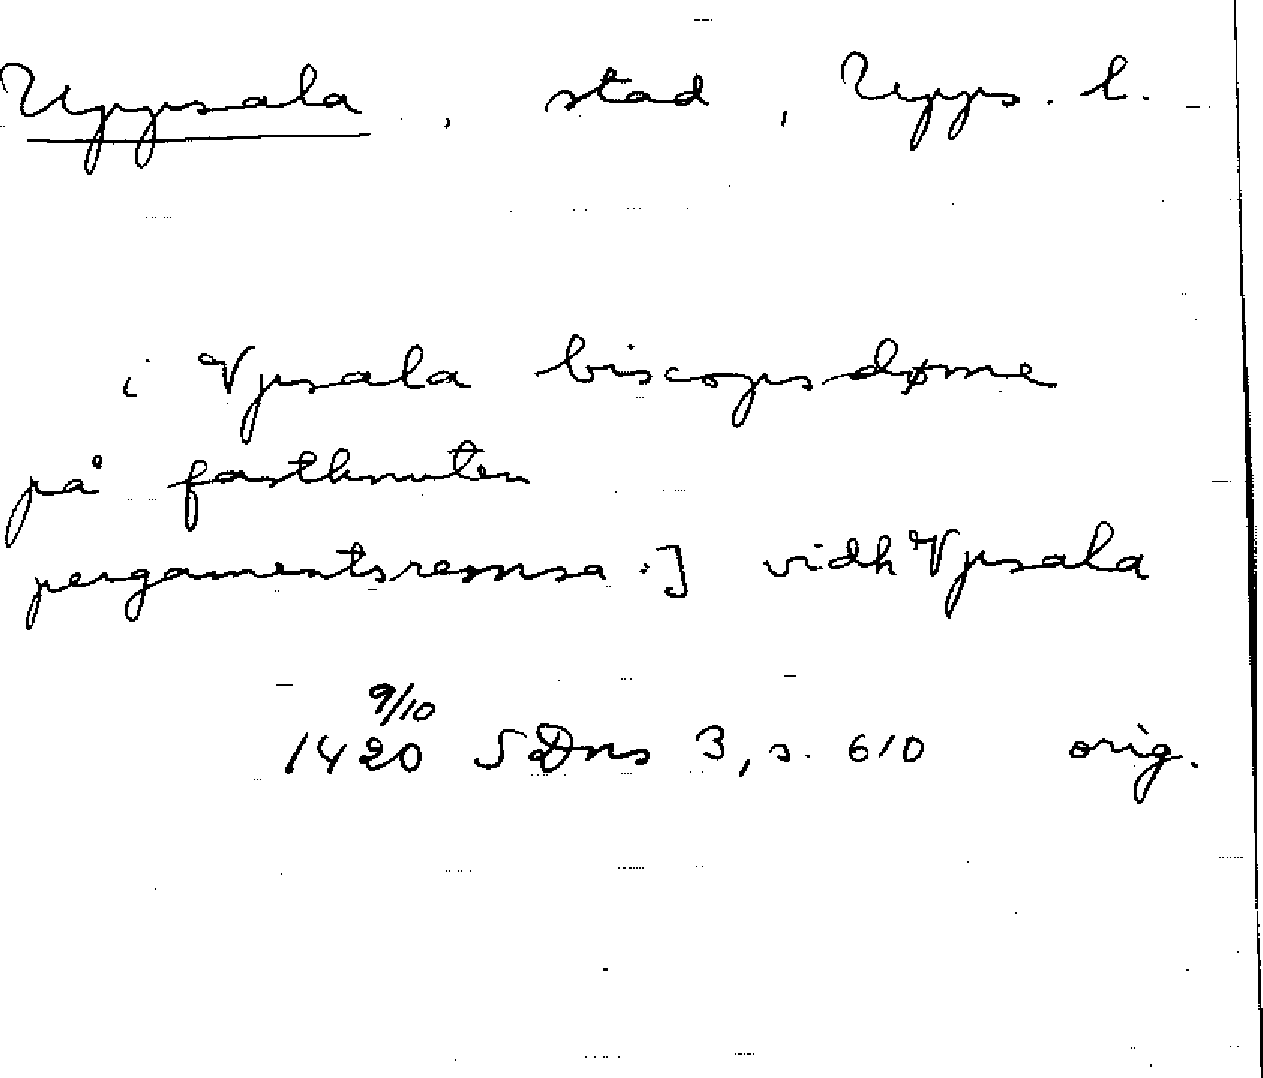 Uppsala, stad, Upps. l.
i Vpsala biscopsdøme
på fastknuten
pergamentsremsa :] vidh Vpsala
9/10
1420 SDns 3, s. 610 orig.